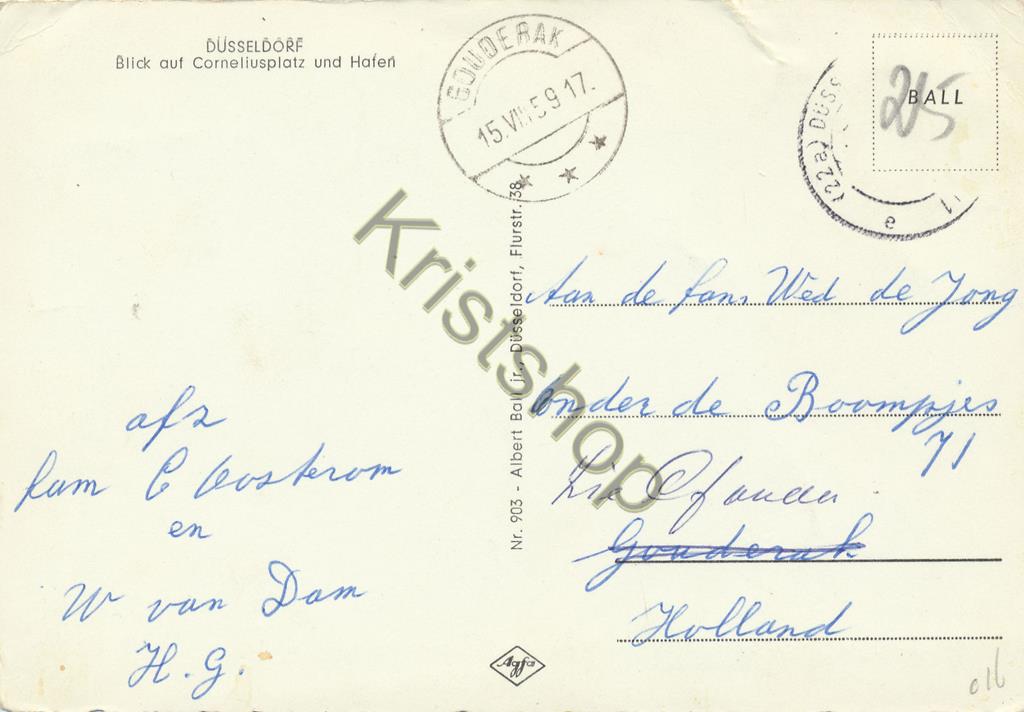 DÜSSELDORF
Blick auf Corneliusplatz und Hafen
GOUDERAK
15.VIII.59 17.
(22a) DÜSS
e
BALL
25
Nr. 903 - Albert Ball jr., Düsseldorf, Flurstr. 38
Kristshop
Aan de fam. Wed de Jong
Onder de Boompjes
71
Gouderak
Holland
afz
fam C Oosterom
en
W van Dam
H.G.
Agfa